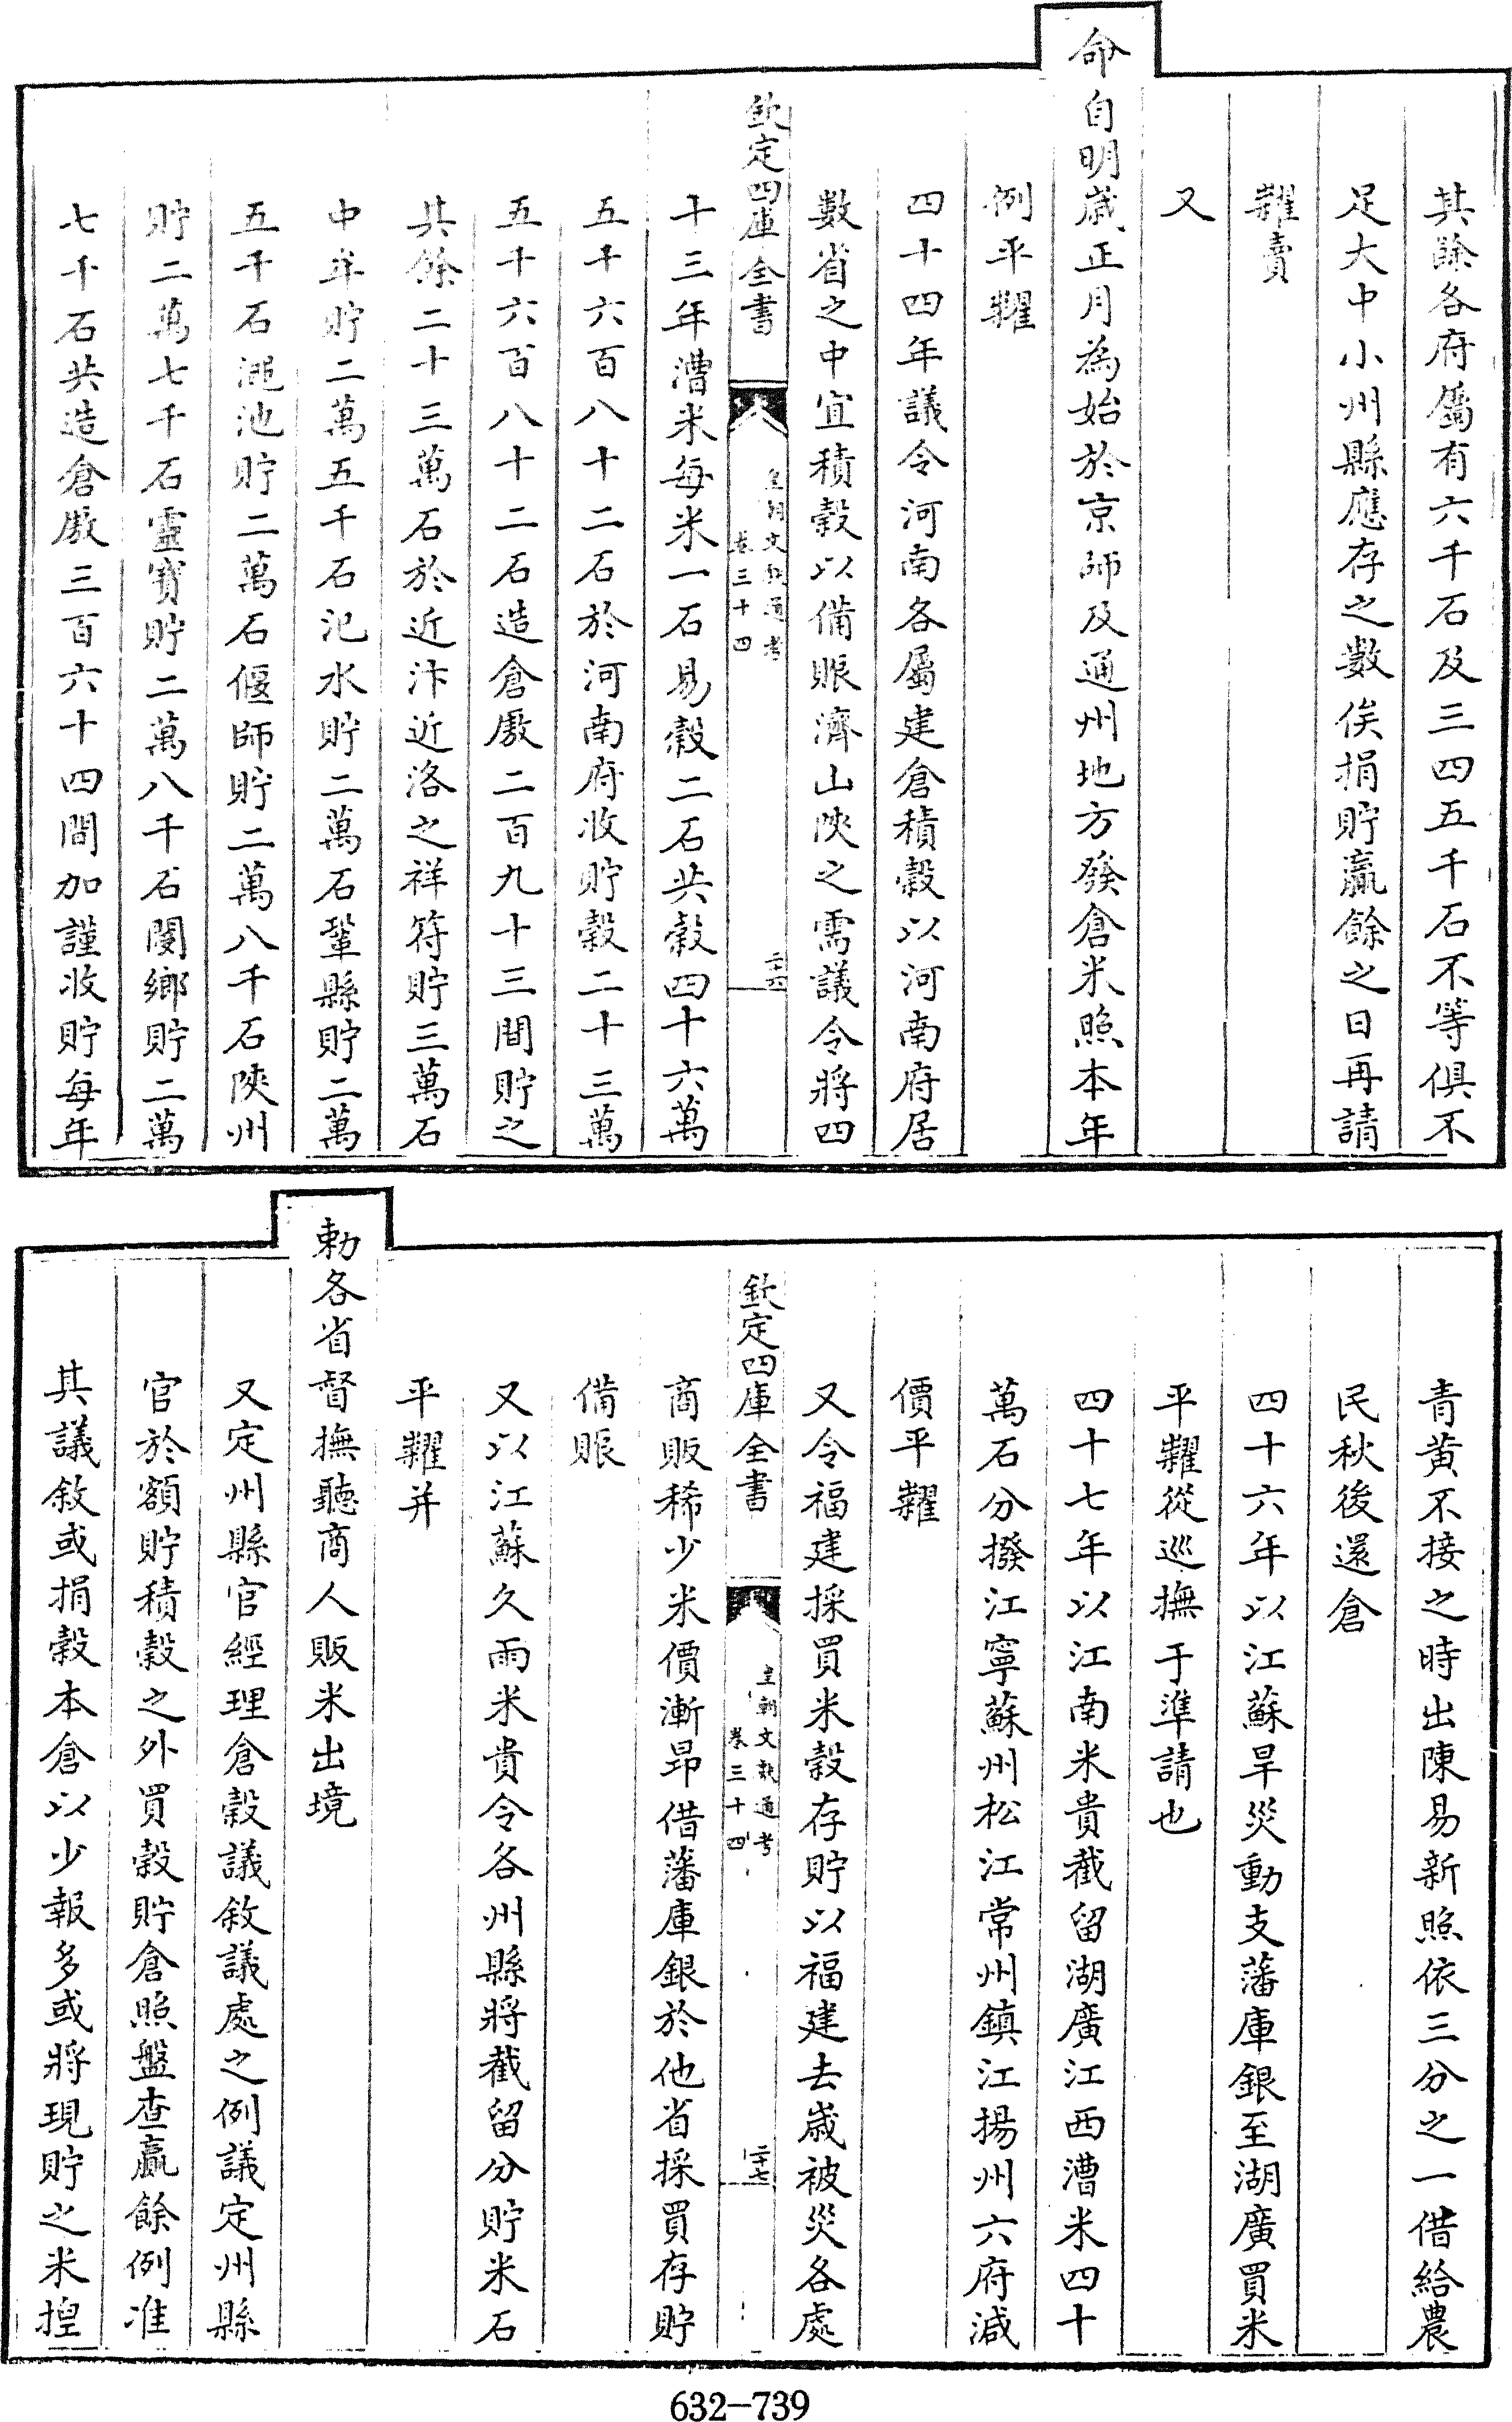 其餘各府屬有六千石及三四五千石不等俱不
足大中小州縣應存之數俟捐貯贏餘之日再請
糶賣
又
命自明歲正月為始於京師及通州地方發倉米照本年
例平糶
四十四年議令河南各屬建倉積穀以河南府居
數省之中宜積穀以備賑濟山陝之需議令將四
欽定四庫全書
皇朝文獻通考
卷三十四
二十六
十三年漕米每米一石易穀二石共穀四十六萬
五千六百八十二石於河南府收貯穀二十三萬
五千六百八十二石造倉廒二百九十三間貯之
其餘二十三萬石於近汴近洛之祥符貯三萬石
中牟貯二萬五千石汜水貯二萬石鞏縣貯二萬
五千石澠池貯二萬石偃師貯二萬八千石陝州
貯二萬七千石靈寶貯二萬八千石閿鄉貯二萬
七千石共造倉廒三百六十四間加謹收貯每年
青黄不接之時出陳易新照依三分之一借給農
民秋後還倉
四十六年以江蘇旱災動支藩庫銀至湖廣買米
平糶從巡撫于準請也
四十七年以江南米貴截留湖廣江西漕米四十
萬石分撥江寧蘇州松江常州鎮江揚州六府減
價平糶
又令福建採買米穀存貯以福建去歲被災各處
欽定四庫全書
皇朝文獻通考
卷三十四
二十七
商販稀少米價漸昂借藩庫銀於他省採買存貯
備賑
又以江蘇久雨米貴令各州縣將截留分貯米石
平糶并
勅各省督撫聽商人販米出境
又定州縣官經理倉穀議敘議處之例議定州縣
官於額貯積穀之外買穀貯倉照盤查贏餘例准
其議敘或捐穀本倉以少報多或將現貯之米捏
632-739